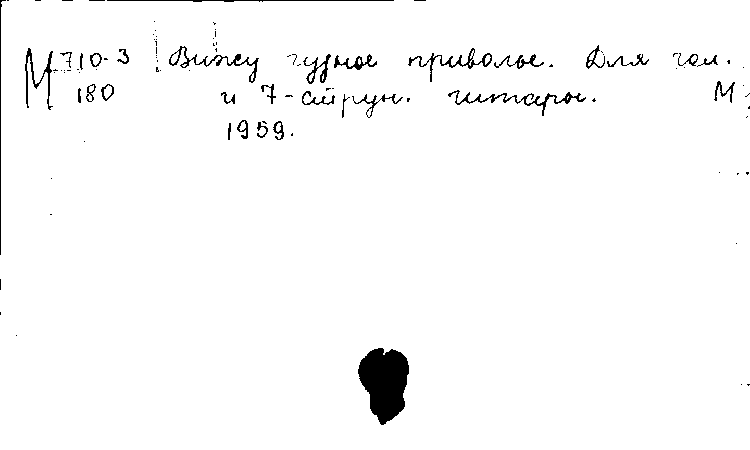 М 710-3 Вижу чудное приволье. Для гол.
180 и 7-струн. гитары. М
1959.